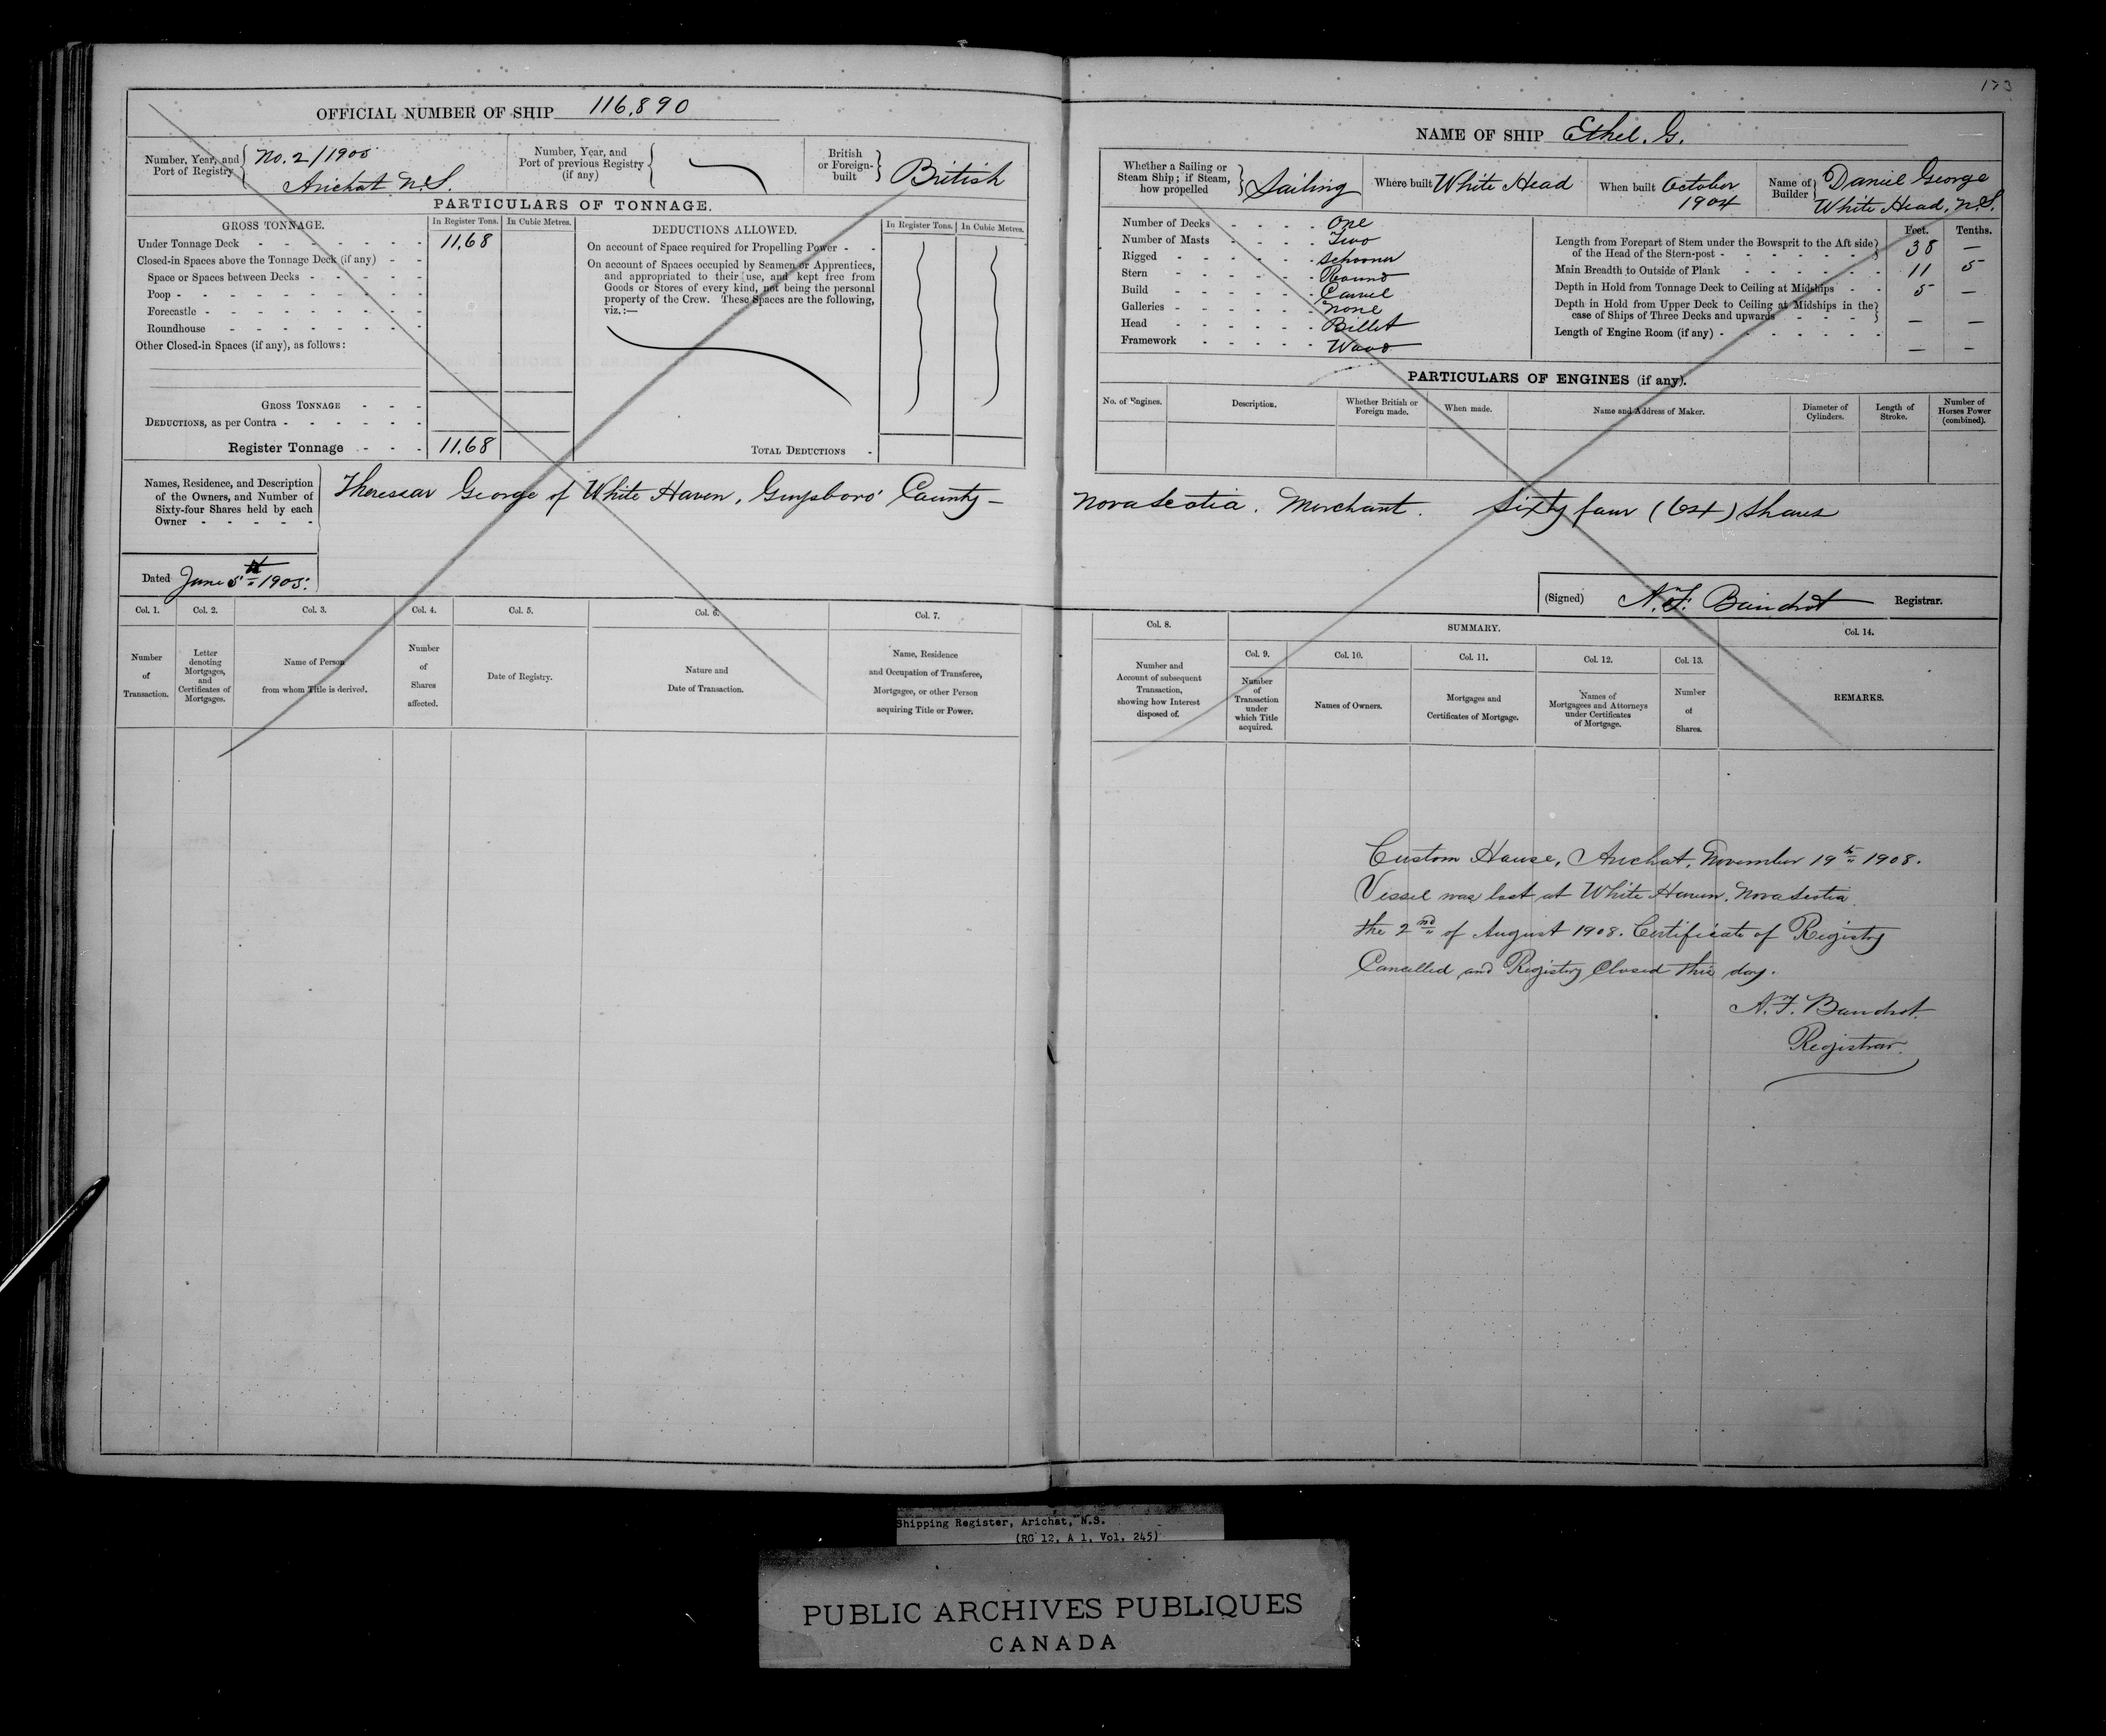 173
OFFICIAL NUMBER OF SHIP 116,890
Number, Year, and Port of Registry No. 2/1905 Arichat N.S.
Number, Year, and Port of previous Registry (if any)
British or Foreign-built British
PARTICULARS OF TONNAGE.
GROSS TONNAGE. In Register Tons. In Cubic Metres.
Under Tonnage Deck 11.68
Closed-in Spaces above the Tonnage Deck (if any)
Space or Spaces between Decks
Poop
Forecastle
Roundhouse
Other Closed-in Spaces (if any), as follows:
GROSS TONNAGE
DEDUCTIONS, as per Contra
Register Tonnage 11.68
DEDUCTIONS ALLOWED. In Register Tons. In Cubic Metres.
On account of Space required for Propelling Power
On account of Spaces occupied by Seamen or Apprentices,
and appropriated to their use, and kept free from
Goods or Stores of every kind, not being the personal
property of the Crew. These Spaces are the following,
viz.:—
TOTAL DEDUCTIONS
NAME OF SHIP Ethel. G.
Whether a Sailing or Steam Ship; if Steam, how propelled Sailing
Where built White Head
When built October 1904
Name of Builder Daniel George White Head, N.S.
Number of Decks One
Number of Masts Two
Rigged Schooner
Stern Round
Build Carvel
Galleries None
Head Billet
Framework Wood
Feet. Tenths.
Length from Forepart of Stem under the Bowsprit to the Aft side
of the Head of the Stern-post 38 —
Main Breadth to Outside of Plank 11 5
Depth in Hold from Tonnage Deck to Ceiling at Midships 5 —
Depth in Hold from Upper Deck to Ceiling at Midships in the
case of Ships of Three Decks and upwards — —
Length of Engine Room (if any) — —
PARTICULARS OF ENGINES (if any).
No. of Engines. Description. Whether British or Foreign made. When made. Name and Address of Maker. Diameter of Cylinders. Length of Stroke. Number of Horses Power (combined).
Names, Residence, and Description
of the Owners, and Number of
Sixty-four Shares held by each
Owner
Theressar George of White Haven, Guysboro' County — Nova Scotia. Merchant. Sixty four (64) Shares
Dated June 5th 1905.
(Signed) N. F. Registrar.
Col. 1. Number of Transaction.
Col. 2. Letter denoting Mortgages, and Certificates of Mortgages.
Col. 3. Name of Person from whom Title is derived.
Col. 4. Number of Shares affected.
Col. 5. Date of Registry.
Col. 6. Nature and Date of Transaction.
Col. 7. Name, Residence and Occupation of Transferee, Mortgagee, or other Person acquiring Title or Power.
Col. 8. Number and Account of subsequent Transaction, showing how Interest disposed of.
SUMMARY.
Col. 9. Number of Transaction under which Title acquired.
Col. 10. Names of Owners.
Col. 11. Mortgages and Certificates of Mortgage.
Col. 12. Names of Mortgagees and Attorneys under Certificates of Mortgage.
Col. 13. Number of Shares.
Col. 14. REMARKS.
Custom House, Arichat, November 19th 1908.
Vessel was lost at White Haven, Nova Scotia
the 2nd of August 1908. Certificate of Registry
Cancelled and Registry Closed this day.
N. F.
Registrar.
Shipping Register, Arichat, N.S.
(RG 12, A 1, Vol. 245)
PUBLIC ARCHIVES PUBLIQUES
CANADA